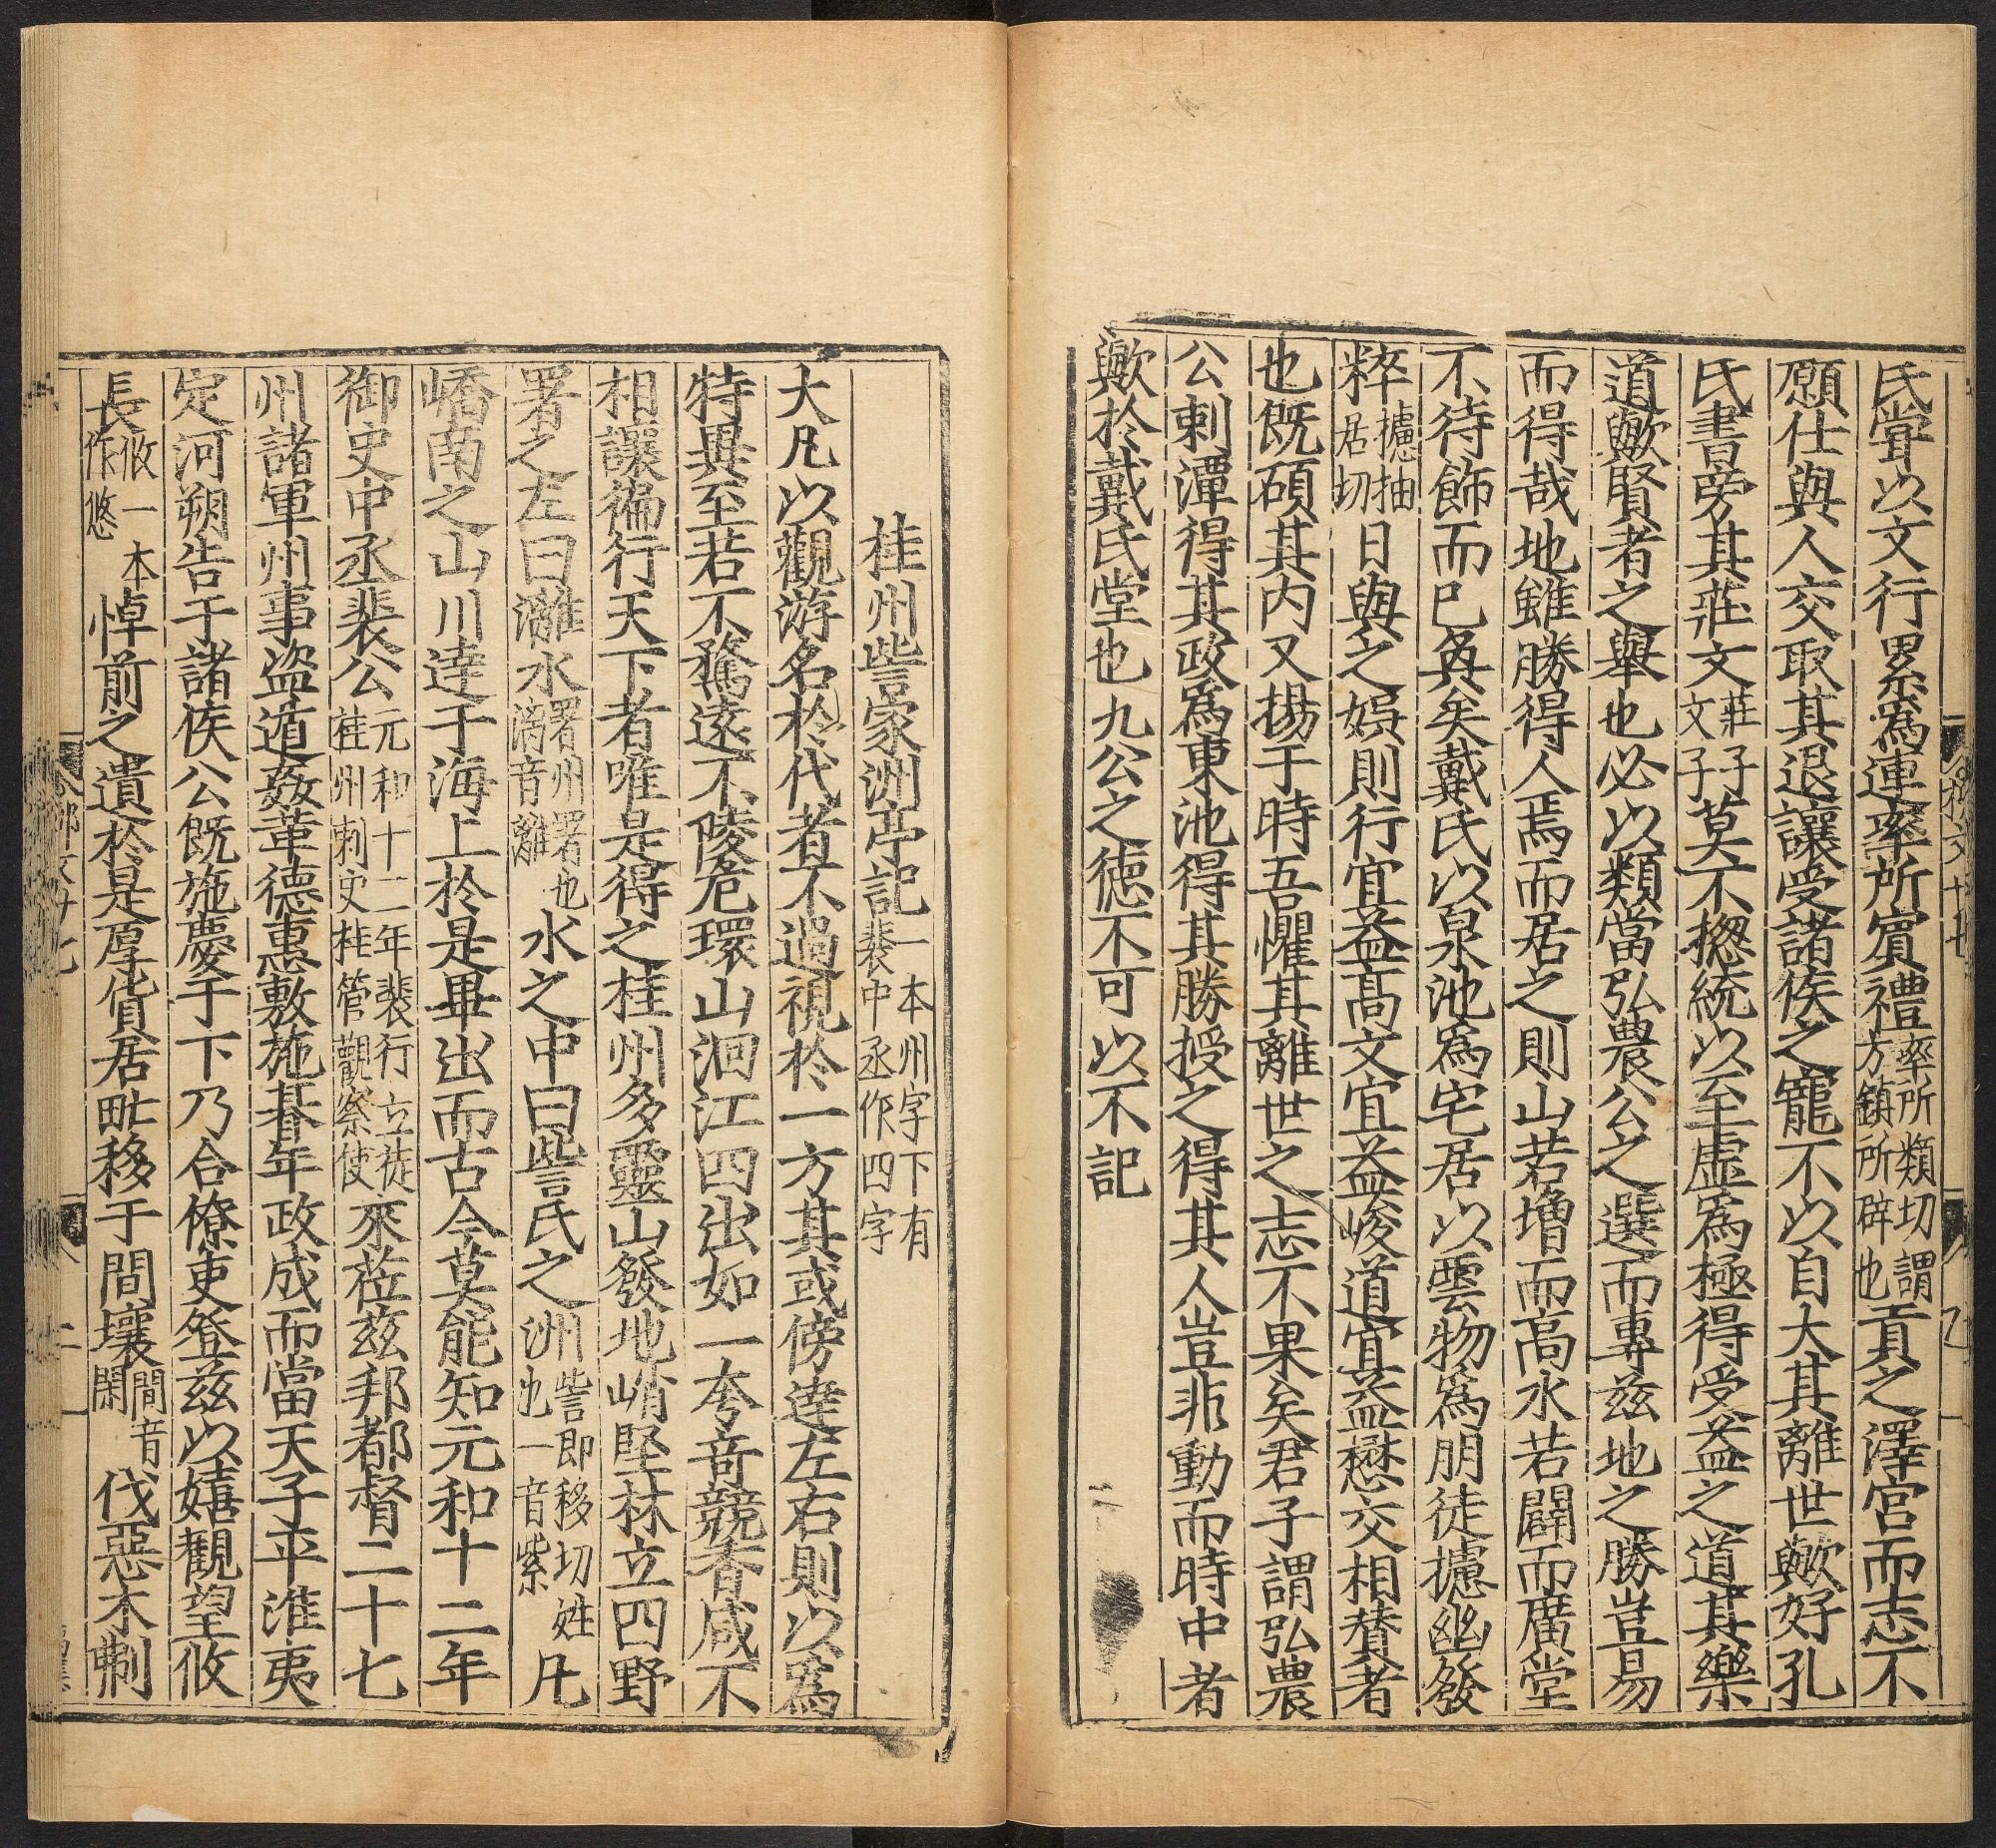 氏甞以文行累爲連率所賓禮率所類切謂方鎮所辟也貢之澤宮而志不
願仕與人交取其退讓受諸侯之寵不以自大其離世歟好孔
氏書旁其莊文莊子文子莫不揔統以至虛爲極得受益之道其樂
道歟賢者之舉也必以類當弘農公之選而專茲地之勝豈易
而得哉地雖勝得人焉而居之則山若增而高水若闢而廣堂
不待飾而已奐矣戴氏以泉池爲宅居以雲物爲朋徒攄幽發
粹攄抽居切日與之娯則行宜益高文宜益峻道宜益懋交相贊者
也既碩其内又揚于時吾懼其離世之志不果矣君子謂弘農
公刺潭得其政爲東池得其勝授之得其人豈非動而時中者
歟於戴氏堂也九公之德不可以不記
桂州訾家洲亭記一本州字下有裴中丞作四字
大凡以觀游名於代者不過視於一方其或傍達左右則以爲
特異至若不騖遠不陵危環山洄江四出如一夸竒競秀咸不
相讓徧行天下者唯是得之桂州多靈山發地峭堅林立四野
署之左曰灕水署州署也漓音離水之中曰訾氏之洲訾即移切姓也一音紫凡
嶠南之山川達于海上於是畢出而古今莫能知元和十二年
御史中丞裴公元和十二年裴行立徒桂州刺史桂管觀察使來莅茲邦都督二十七
州諸軍州事盜遁姦革德惠敷施朞年政成而當天子平淮夷
定河朔告于諸侯公既施慶于下乃合僚吏登茲以嬉觀望攸
長攸一本作悠悼前之遺於是厚貨居甿移于間壤間音閑伐惡木刜